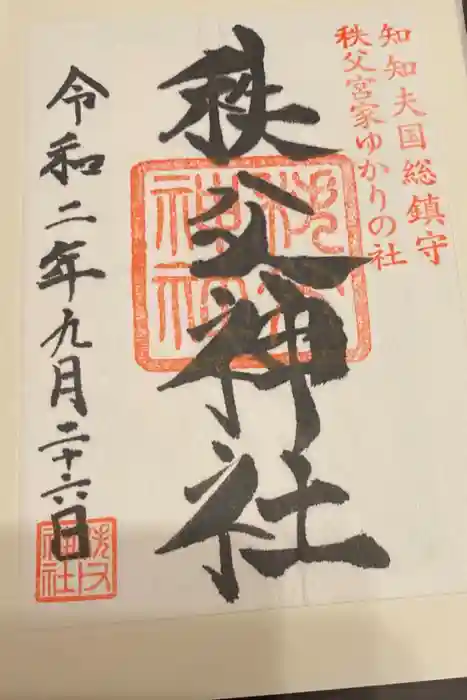 知知夫国総鎮守
秩父宮家ゆかりの社
秩父神社
令和二年九月二十六日
秩父神社
秩父神社